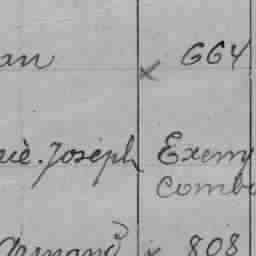 an x 664
rie. Joseph Exem
Comb
Armand x 808